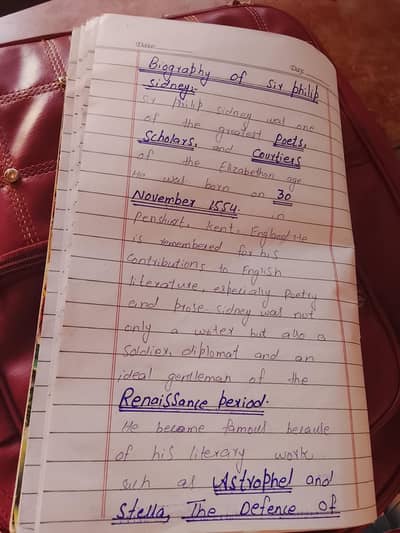 Date:
Day
Biography of Sir philip
Sidney:
Sir philip sidney was one
of the greatest Poets,
Scholars, and Courtiers
of the Elizabethan age
He was born on 30
November 1554. in
Penshurt, Kent, England He
is remembered for his
Contributions to English
literature, especially Poetry
and prose. sidney was not
only a writer but also a
Soldier, diplomat and an
ideal gentleman of the
Renaissance period.
He became famous because
of his literary work
such as Astrophel and
Stella, The Defence of